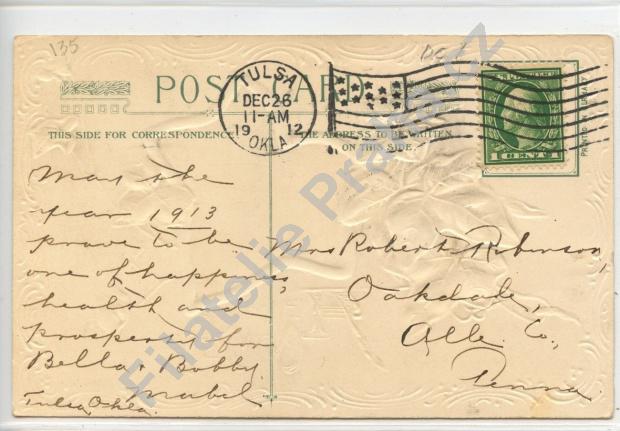 135
POST CARD
TULSA
DEC 26
11-AM
1912
OKLA
1 CENT 1
PRINTED IN GERMANY
THIS SIDE FOR CORRESPONDENCE
THE ADDRESS TO BE WRITTEN
ON THIS SIDE
May the
year 1913
prove to be
one of happiness,
health and
prosperity for
Bella & Bobby.
Mabel
Tulsa, Okla.
Mrs Robert Robinson,
Oakdale,
Alle. Co.,
Penna.
Filatelie Praha.cz